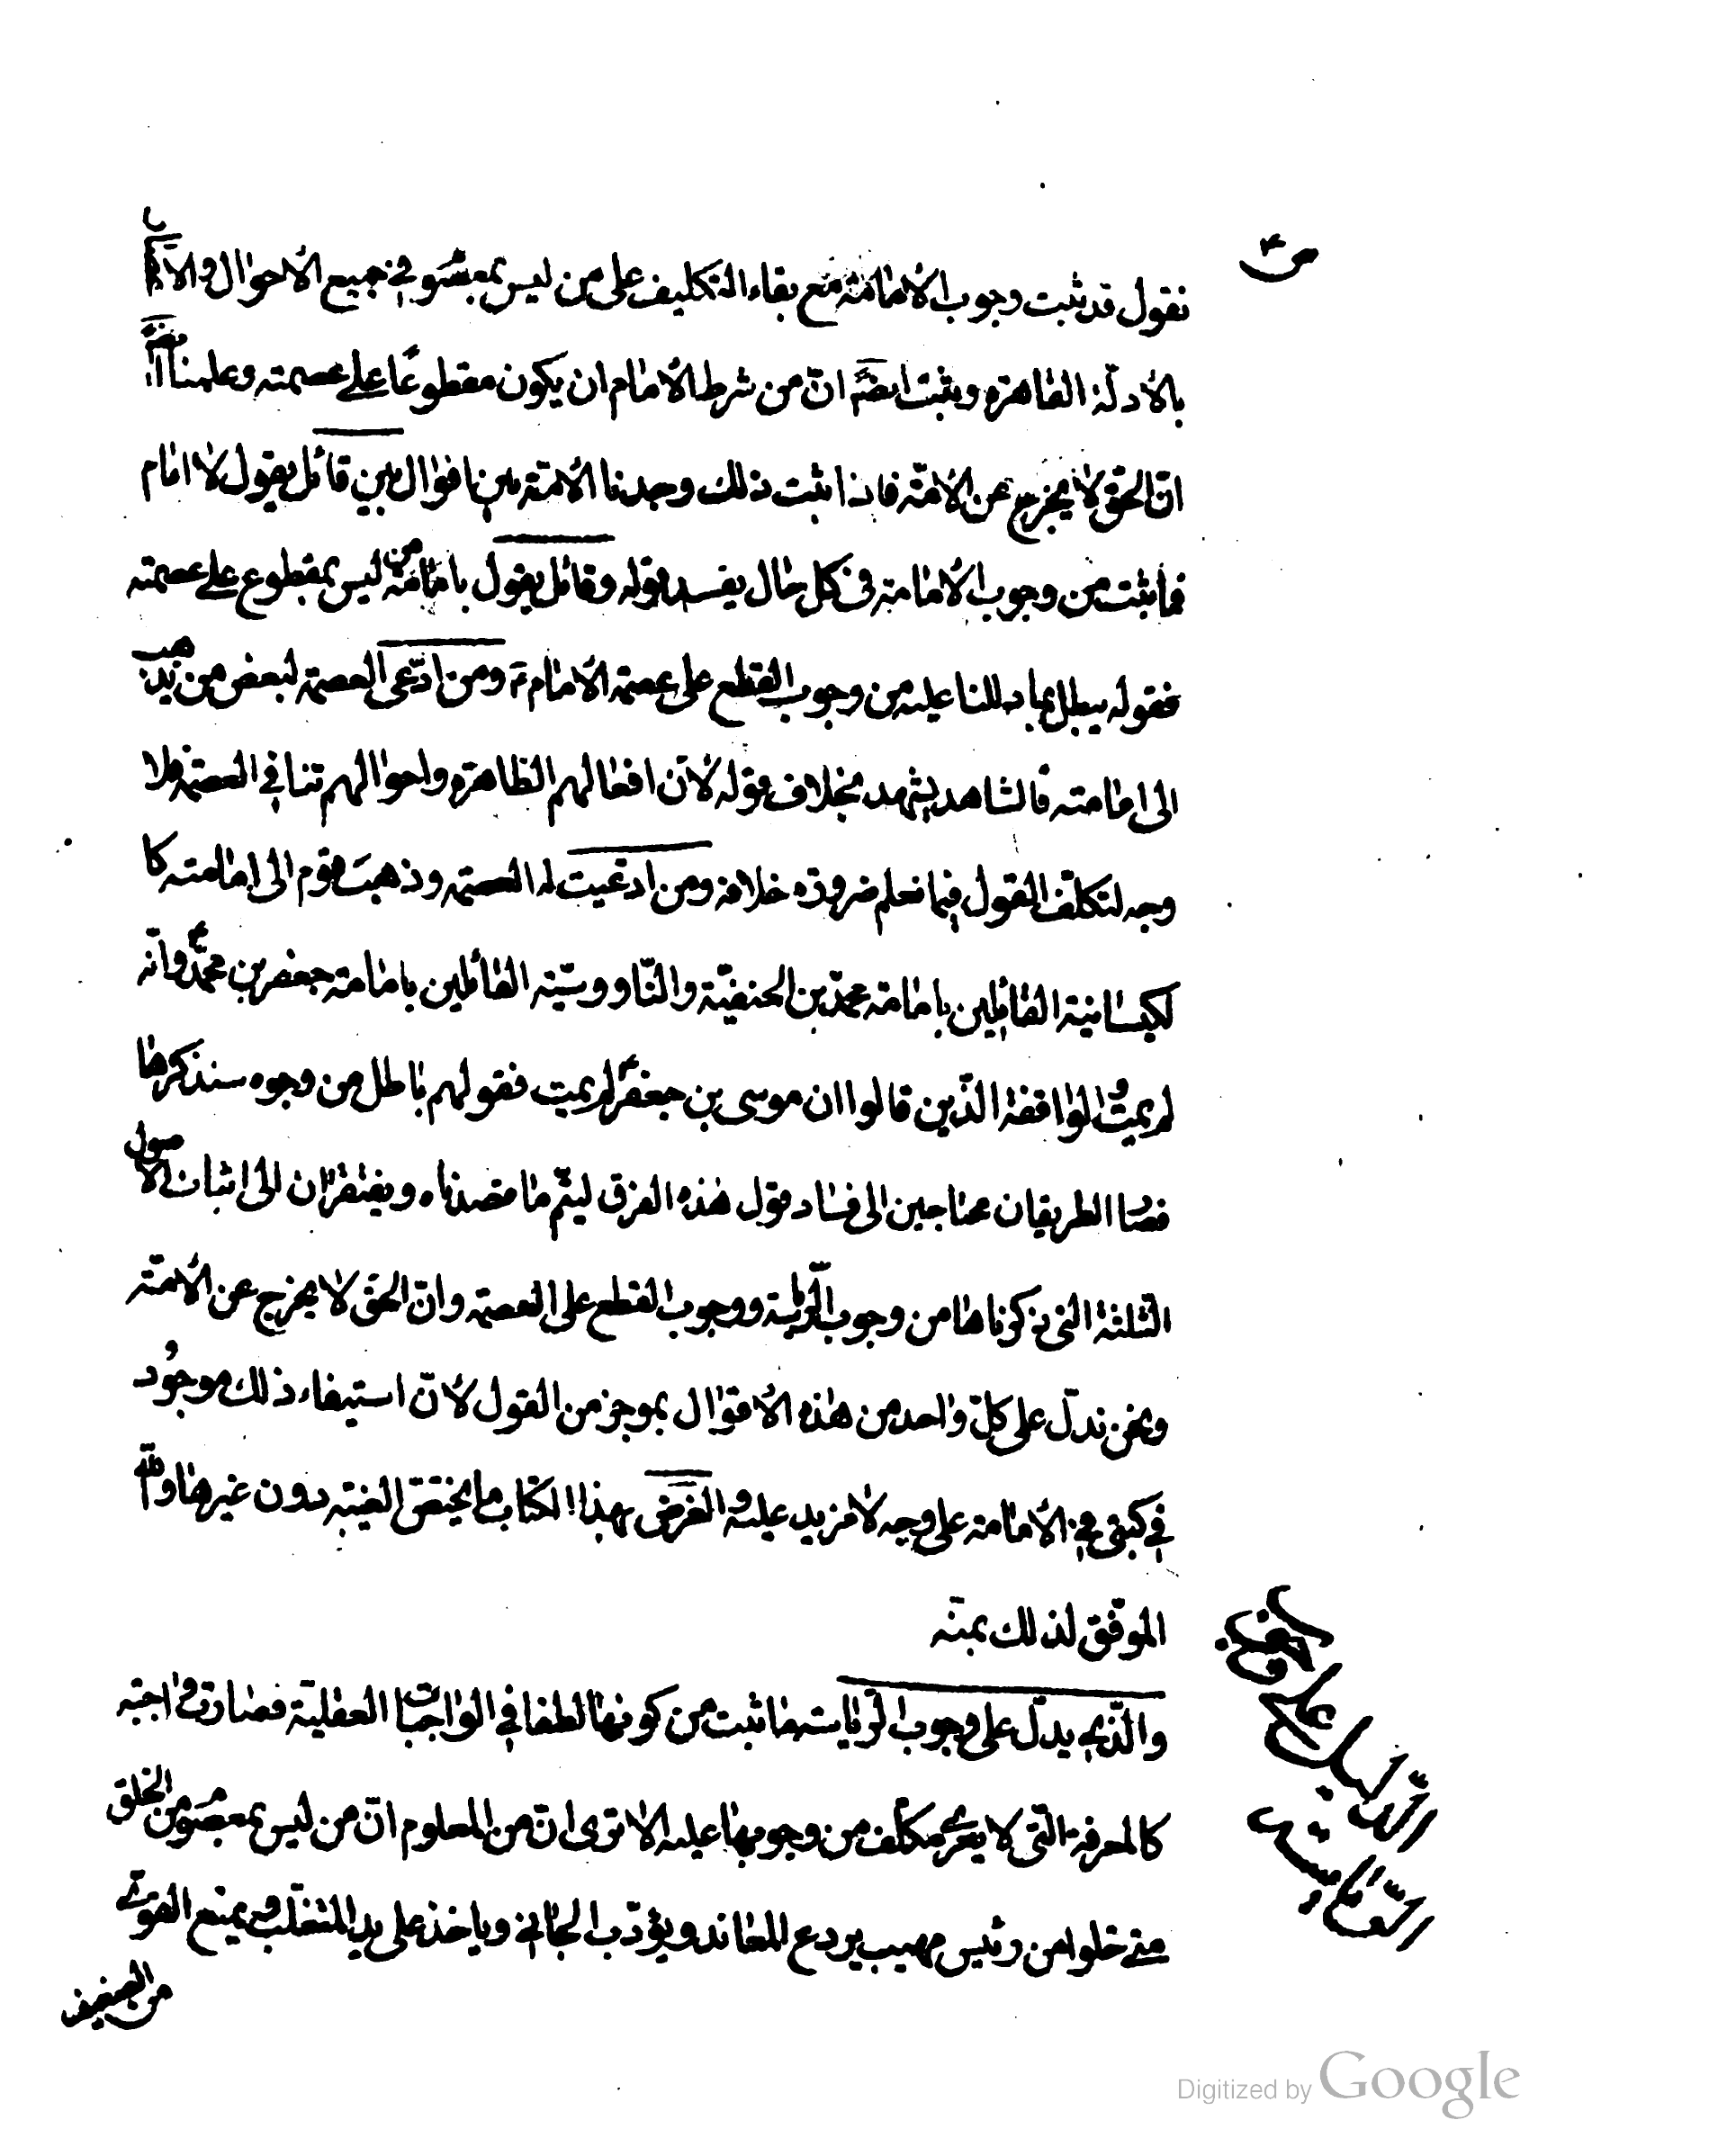 نقول قد ثبت وجوب الامامة مع بقاء التكليف على من ليس بمعصوم في جميع الاحوال والا
بالادلة القاهرة وثبت ايضا انّ من شرط الامام ان يكون مقطوعًا على عصمته وعلمنا ايضا
انّ الحق لا يخرج عن الامّة فاذا ثبت ذلك وجدنا الامّة بين اقوال بين قائل يقول لا امام
فما ثبت من وجوب الامامة في كل حال يفسد قوله وقائل يقول بامامة من ليس بمقطوع على عصمته
فقوله يبطل بما دللنا عليه من وجوب القطع على عصمة الامام ومن ادّعى العصمة لبعض من يذهب
الى امامته فالشاهد يشهد بخلاف قوله لانّ افعالهم الظاهرة واحوالهم تنافي العصمة فلا
وجه لتكلّف القول فيما نعلم ضرورة خلافه ومن ادعيت له العصمة وذهبت قوم الى امامته كا
لكيسانية القائلين بامامة محمّد بن الحنفيّة والنّاووسيّة القائلين بامامة جعفر بن محمّد وانّه
لم يمت والواقفة الّذين قالوا ان موسى بن جعفر لم يمت فقولهم باطل من وجوه سنذكرها
فصا الطريقان محتاجين الى فساد قول هذه الفرق ليتمّ ما قصدناه ويفتقران الى اثبات الاصول
الثلثة التي ذكرناها من وجوب الرياسة ووجوب القطع على العصمة وانّ الحق لا يخرج عن الامّة
ونحن ندلّ على كلّ واحد من هذه الاقوال بموجز من القول لانّ استيفاء ذلك موجود
في كتبي في الامامة على وجه لا مزيد عليه والغرض بهذا الكتاب ما يختصّ الغيبة دون غيرها والله
الموفّق لذلك بمنّه
والّذي يدلّ على وجوب الرّياسة ما ثبت من كونها لطفا في الواجبات العقلية فصارت واجبة
كالمعرفة التي لا يعرى مكلّف من وجوبها عليه الا ترى انّ من المعلوم انّ من ليس بمعصوم من الخلق
متى خلوا من رئيس مهيب يردع المعاند ويؤدّب الجاني وياخذ على يد المتغلّب ويمنع القوي
من الضعيف
الدليل على وجوب
الرّياسة